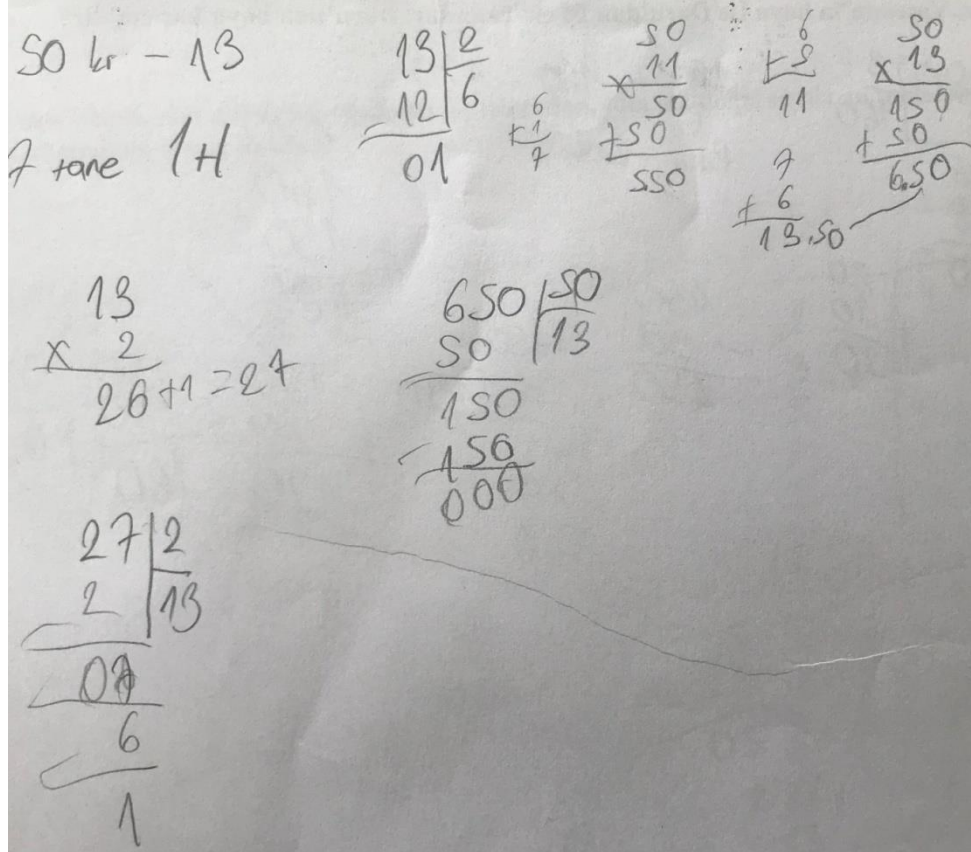 50 kr - 13
7 tane 1tl
13 | 2
12 | 6
01
6
+ 1
7
50
x 11
50
+ 50
550
6
+ 5
11
7
+ 6
13.50
50
x 13
150
+ 50
6.50
13
x 2
26+1=27
650 | 50
50 | 13
150
- 150
000
27 | 2
2 | 13
07
6
1